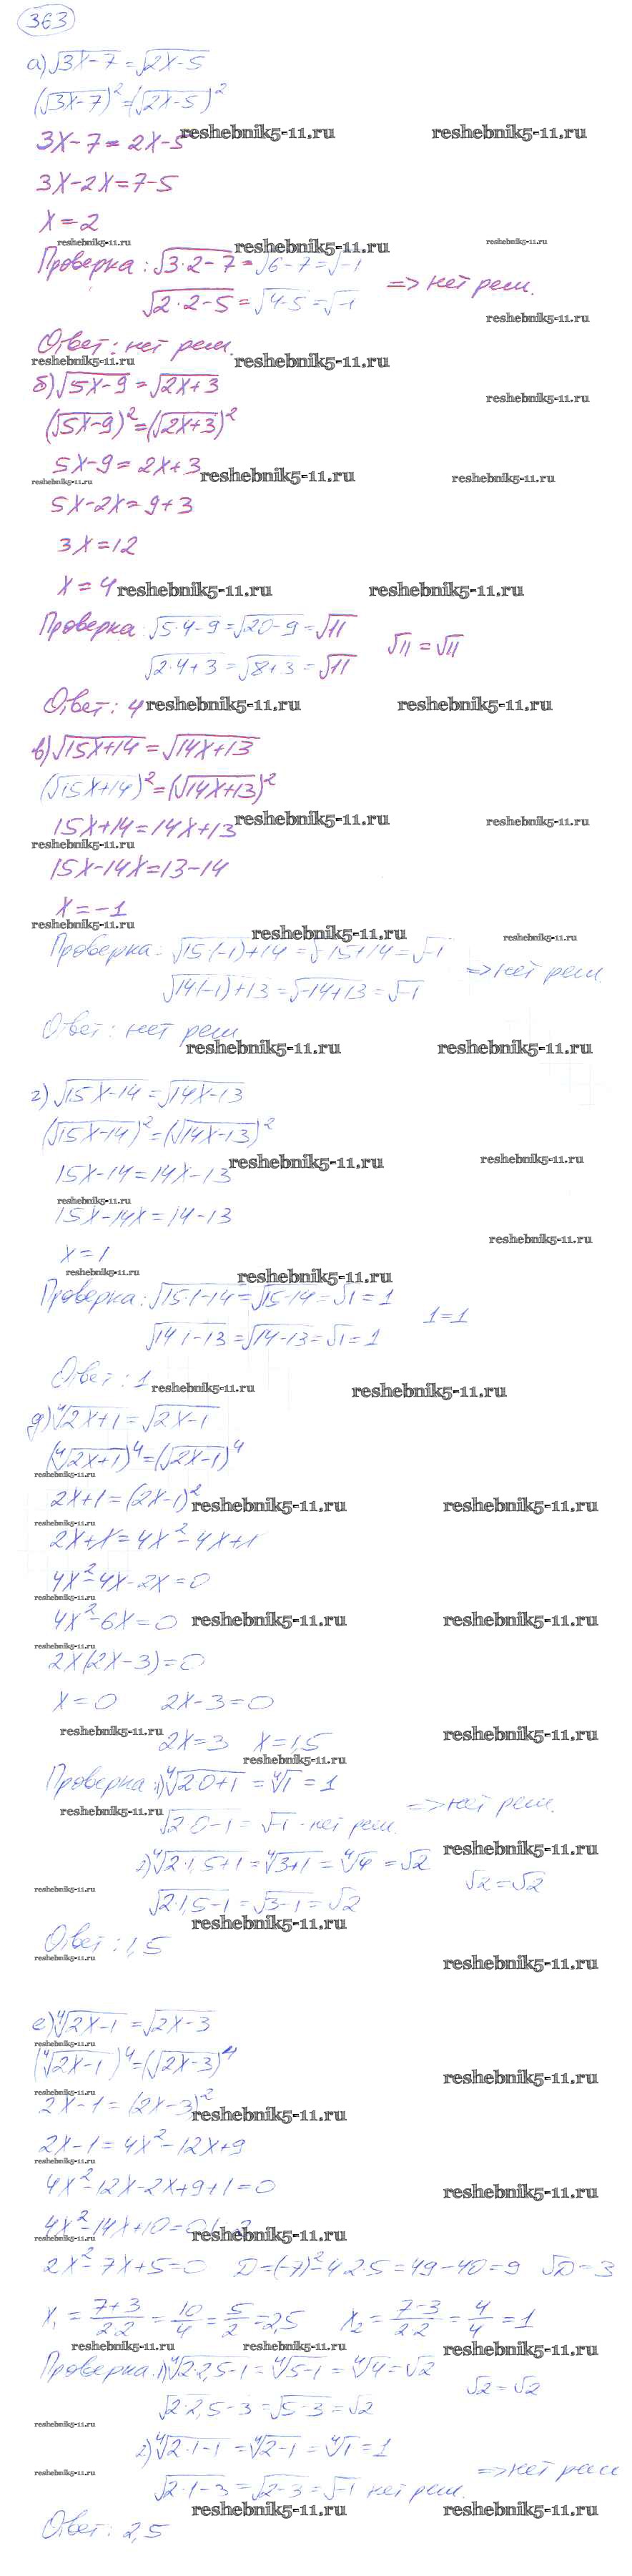 363
а) √3x-7 = √2x-5
(√3x-7)² = (√2x-5)²
3x-7 = 2x-5
reshebnik5-11.ru reshebnik5-11.ru
3x-2x=7-5
x=2
reshebnik5-11.ru reshebnik5-11.ru reshebnik5-11.ru
Проверка: √3·2-7 = √6-7 = √-1
√2·2-5 = √4-5 = √-1 => нет реш.
reshebnik5-11.ru
Ответ: нет реш.
reshebnik5-11.ru reshebnik5-11.ru
б) √5x-9 = √2x+3
reshebnik5-11.ru
(√5x-9)² = (√2x+3)²
5x-9 = 2x+3
reshebnik5-11.ru reshebnik5-11.ru reshebnik5-11.ru
5x-2x = 9+3
3x=12
x=4
reshebnik5-11.ru reshebnik5-11.ru
Проверка: √5·4-9 = √20-9 = √11
√2·4+3 = √8+3 = √11 √11 = √11
Ответ: 4
reshebnik5-11.ru reshebnik5-11.ru
в) √15x+14 = √14x+13
(√15x+14)² = (√14x+13)²
15x+14 = 14x+13
reshebnik5-11.ru reshebnik5-11.ru
reshebnik5-11.ru
15x-14x=13-14
x=-1
reshebnik5-11.ru reshebnik5-11.ru reshebnik5-11.ru
Проверка: √15(-1)+14 = √-15+14 = √-1
√14(-1)+13 = √-14+13 = √-1 => нет реш.
Ответ: нет реш.
reshebnik5-11.ru reshebnik5-11.ru
г) √15x-14 = √14x-13
(√15x-14)² = (√14x-13)²
15x-14 = 14x-13
reshebnik5-11.ru reshebnik5-11.ru
reshebnik5-11.ru
15x-14x=14-13
reshebnik5-11.ru
x=1
reshebnik5-11.ru reshebnik5-11.ru
Проверка: √15·1-14 = √15-14 = √1 = 1
√14·1-13 = √14-13 = √1 = 1 1=1
Ответ: 1
reshebnik5-11.ru reshebnik5-11.ru
д) ⁴√2x+1 = √2x-1
(⁴√2x+1)⁴ = (√2x-1)⁴
reshebnik5-11.ru
2x+1 = (2x-1)²
reshebnik5-11.ru reshebnik5-11.ru
reshebnik5-11.ru
2x+1 = 4x²-4x+1
4x²-4x-2x=0
reshebnik5-11.ru
4x²-6x=0
reshebnik5-11.ru reshebnik5-11.ru
reshebnik5-11.ru
2x(2x-3)=0
x=0 2x-3=0
reshebnik5-11.ru reshebnik5-11.ru
2x=3 x=1,5
reshebnik5-11.ru
Проверка: 1) ⁴√2·0+1 = ⁴√1 = 1
reshebnik5-11.ru
√2·0-1 = √-1 - нет реш. => нет реш.
reshebnik5-11.ru
2) ⁴√2·1,5+1 = ⁴√3+1 = ⁴√4 = √2
reshebnik5-11.ru
√2·1,5-1 = √3-1 = √2 √2 = √2
reshebnik5-11.ru
Ответ: 1,5
reshebnik5-11.ru reshebnik5-11.ru
е) ⁴√2x-1 = √2x-3
reshebnik5-11.ru
(⁴√2x-1)⁴ = (√2x-3)⁴
reshebnik5-11.ru
reshebnik5-11.ru
2x-1 = (2x-3)²
reshebnik5-11.ru
2x-1 = 4x²-12x+9
reshebnik5-11.ru
4x²-12x-2x+9+1=0
reshebnik5-11.ru
4x²-14x+10=0
reshebnik5-11.ru reshebnik5-11.ru
2x²-7x+5=0 D=(-7)²-4·2·5=49-40=9 √D=3
x₁ = 7+3/2·2 = 10/4 = 5/2 = 2,5 x₂ = 7-3/2·2 = 4/4 = 1
reshebnik5-11.ru reshebnik5-11.ru reshebnik5-11.ru
Проверка: 1) ⁴√2·2,5-1 = ⁴√5-1 = ⁴√4 = √2
√2·2,5-3 = √5-3 = √2 √2 = √2
reshebnik5-11.ru
2) ⁴√2·1-1 = ⁴√2-1 = ⁴√1 = 1
reshebnik5-11.ru
√2·1-3 = √2-3 = √-1 нет реш. => нет реш
reshebnik5-11.ru reshebnik5-11.ru
Ответ: 2,5